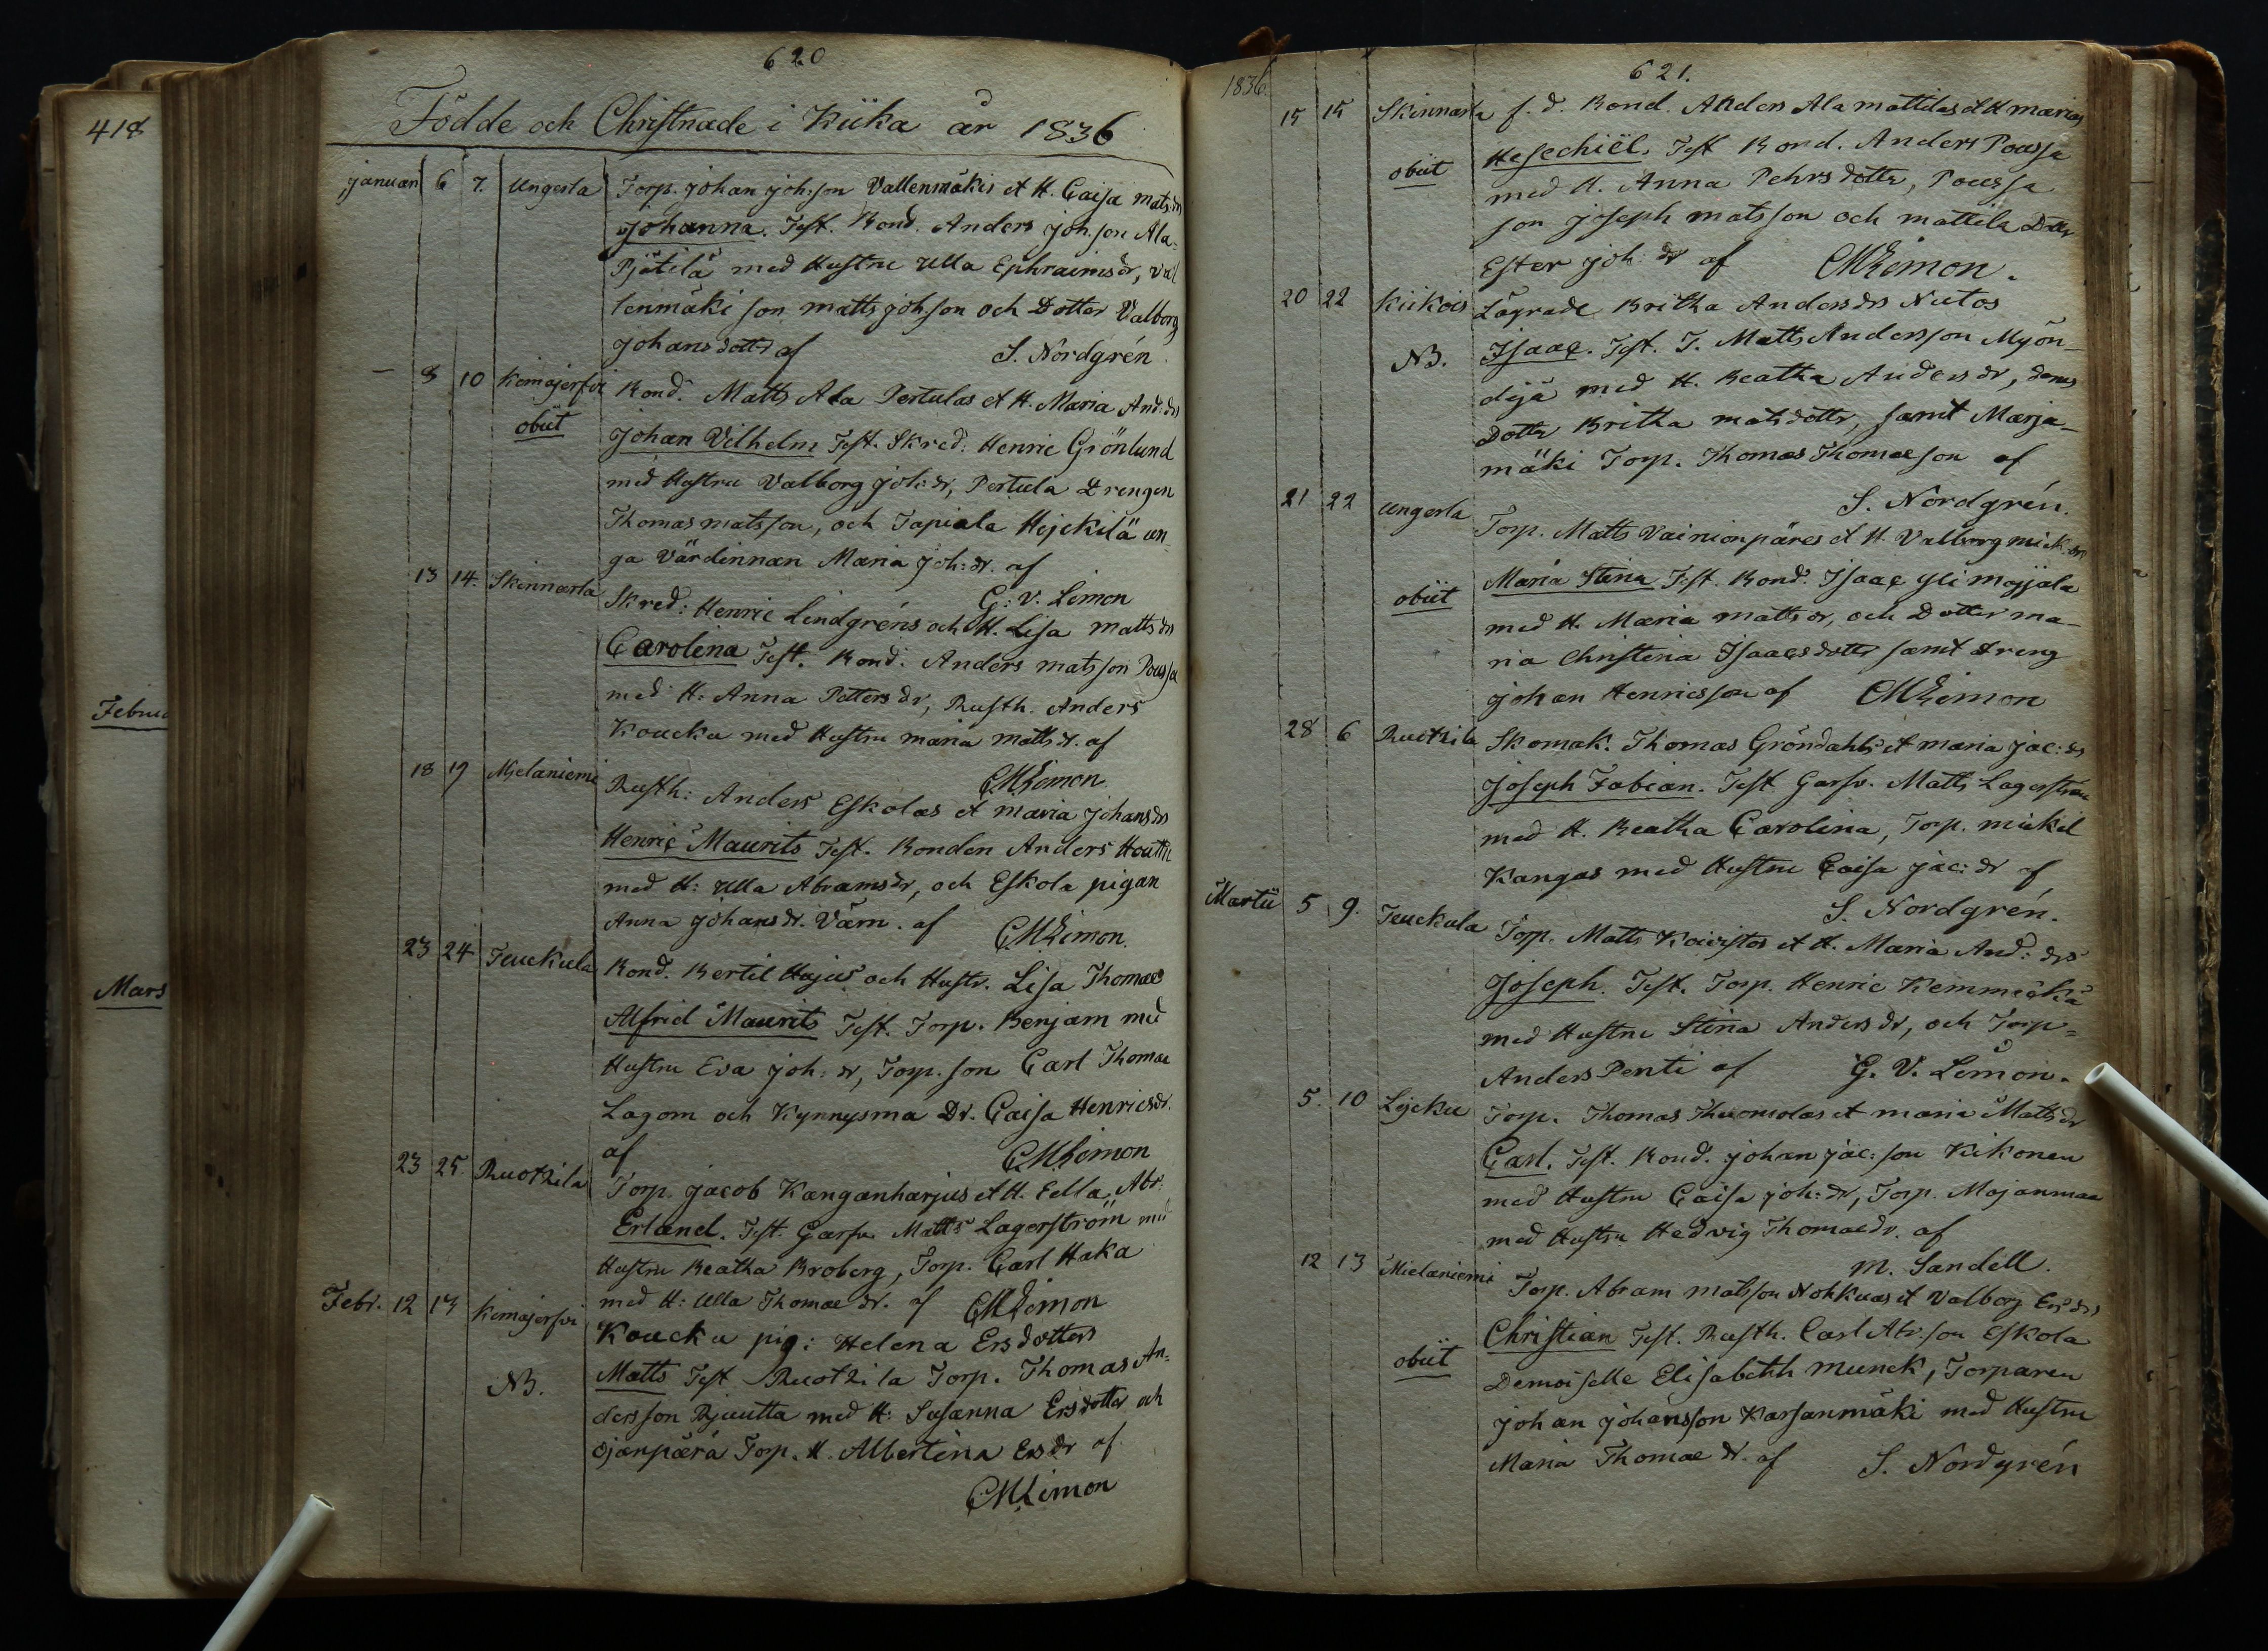 418
Februa
Mars
620
Födde och Christnade i Kiika år 1836
januari 6 7. Ungerla Torp. johan joh:son Vallenmäkis et H. Caisa mats:drs
johanna. Test. Bond. Anders joh.son Ala-
Pjötilä med Hustru Ulla Ephraimsdr, Val
lenmäki son matts johson och Dotter Valborg
johans dotter af S. Nordgrén.
– 8 10 Kemajerfvi Bond. Matts Ala Pertulas et H. Maria And:drs
obiit johan Vilhelm Test. Skred: Henric Grönlund
med Hustru Valborg joh:dr, Pertula Drengen
Thomas matsson, och Tapiala Hejckilä un-
ga Värdinnan Maria joh:dr. af
G: V. Limon
13 14. Skinnarla Skred: Henric Lindgréns och H. Lisa matts drs
Carolina Test. Bond. Anders matsson Poussa
med H: Anna Petters dr, Rusth. Anders
Koucku med Hustru maria matts dr. af
CMLimon
18 19 Mielaniemi Rusth: Anders Eskolas et maria johansdrs
Henric Maurits Test. Bonden Anders Houthi
med H: Ulla Abramsdr, och Eskola pigan
Anna johansdr. Värn. af CMLimon.
23 24 Jeuckula Bond. Bertil Hujus och Hustr. Lisa Thomae
Alfrid Maurits Test. Torp. Benjam med
Hustru Eva joh: dr, Torp. son Carl Thomae
Lagom och Kynnysma Dr. Caisa Henricsdr.
af CMLimon
23 25 Ruotzila Torp. jacob Kanganharjus et H. Eella Abr.
Erland. Test. Garfv. Matts Lagerström med
Hustru Beatha Broberg, Torp. Carl Haka
med H: Ulla Thomae dr. af CMLimon
Febr. 12 13 Kemajerfvi Koucku pig: Helena Ersdotters
NB. Matts Test Ruotzila Torp. Thomas An-
dersson Pjuutta med H: Susanna Ersdotter och
Ojanpärä Torp. H. Albertina Ersdr af
CMLimon
1836. 621.
15 15 Skinnarla f.d. Bond. Anders Ala mattilas et H marias
Hesechiël, Test Bond. Anders Poussa
obiit med H. Anna Pehrsdotter, Poussa
son joseph matsson och mattila Dotter
Ester joh:dr af CMLimon.
20 22 Kiikois Lägrade Britha Andersdrs Nutos
NB. Isaac. Test. T. Matts Andersson Myön-
dijä med H. Beatha Andersdr, deras
dotter Britha matsdotter, samt Marja-
mäki Torp. Thomas Thomaeson af
S. Nordgrén.
21 22 Ungerla Torp. Matts Vainionpäres et H. Valborg mick:drs
Maria Stina Test. Bond. Isaac yli mojjala
obiit med H. Maria matts dr, och Dotter ma-
ria Christina Isaacsdotter samt Dreng
johan Henricsson af CMLimon
28 6 Ruotzila Skomak. Thomas Gröndahls et maria jac:drs
joseph Fabian. Test Garfv. Matts Lagerström
med H. Beatha Carolina, Torp. mickel
Kangas med Hustru Caisa jac:dr af
S. Nordgrén.
Martii 5 9. Jeuckula Torp. Matts Koivistos et H. Maria And: drs
joseph. Test. Torp. Henric Kemmickä
med Hustru Stina Anders dr, och Torp-
Anders Penti af G. V. Limon.
5. 10 Lejcku Torp. Thomas Thuomolas et maria Matts dr
Carl. Test. Bond. johan jac:son Kikonen
med Hustru Caisa joh:dr, Torp. Mojanmaa
med Hustru Hedvig Thomaedr. af
M. Sandell.
12 13 Mielaniemi Torp. Abram matsson Nohkuas et Valborg Ers drs
Christian Test. Rusth. Carl Abr.son Eskola
obiit Demoiselle Elisabeth Munck, Torparen
johan johansson Karsanmäki med Hustru
Maria Thomae dr. af S. Nordgrén